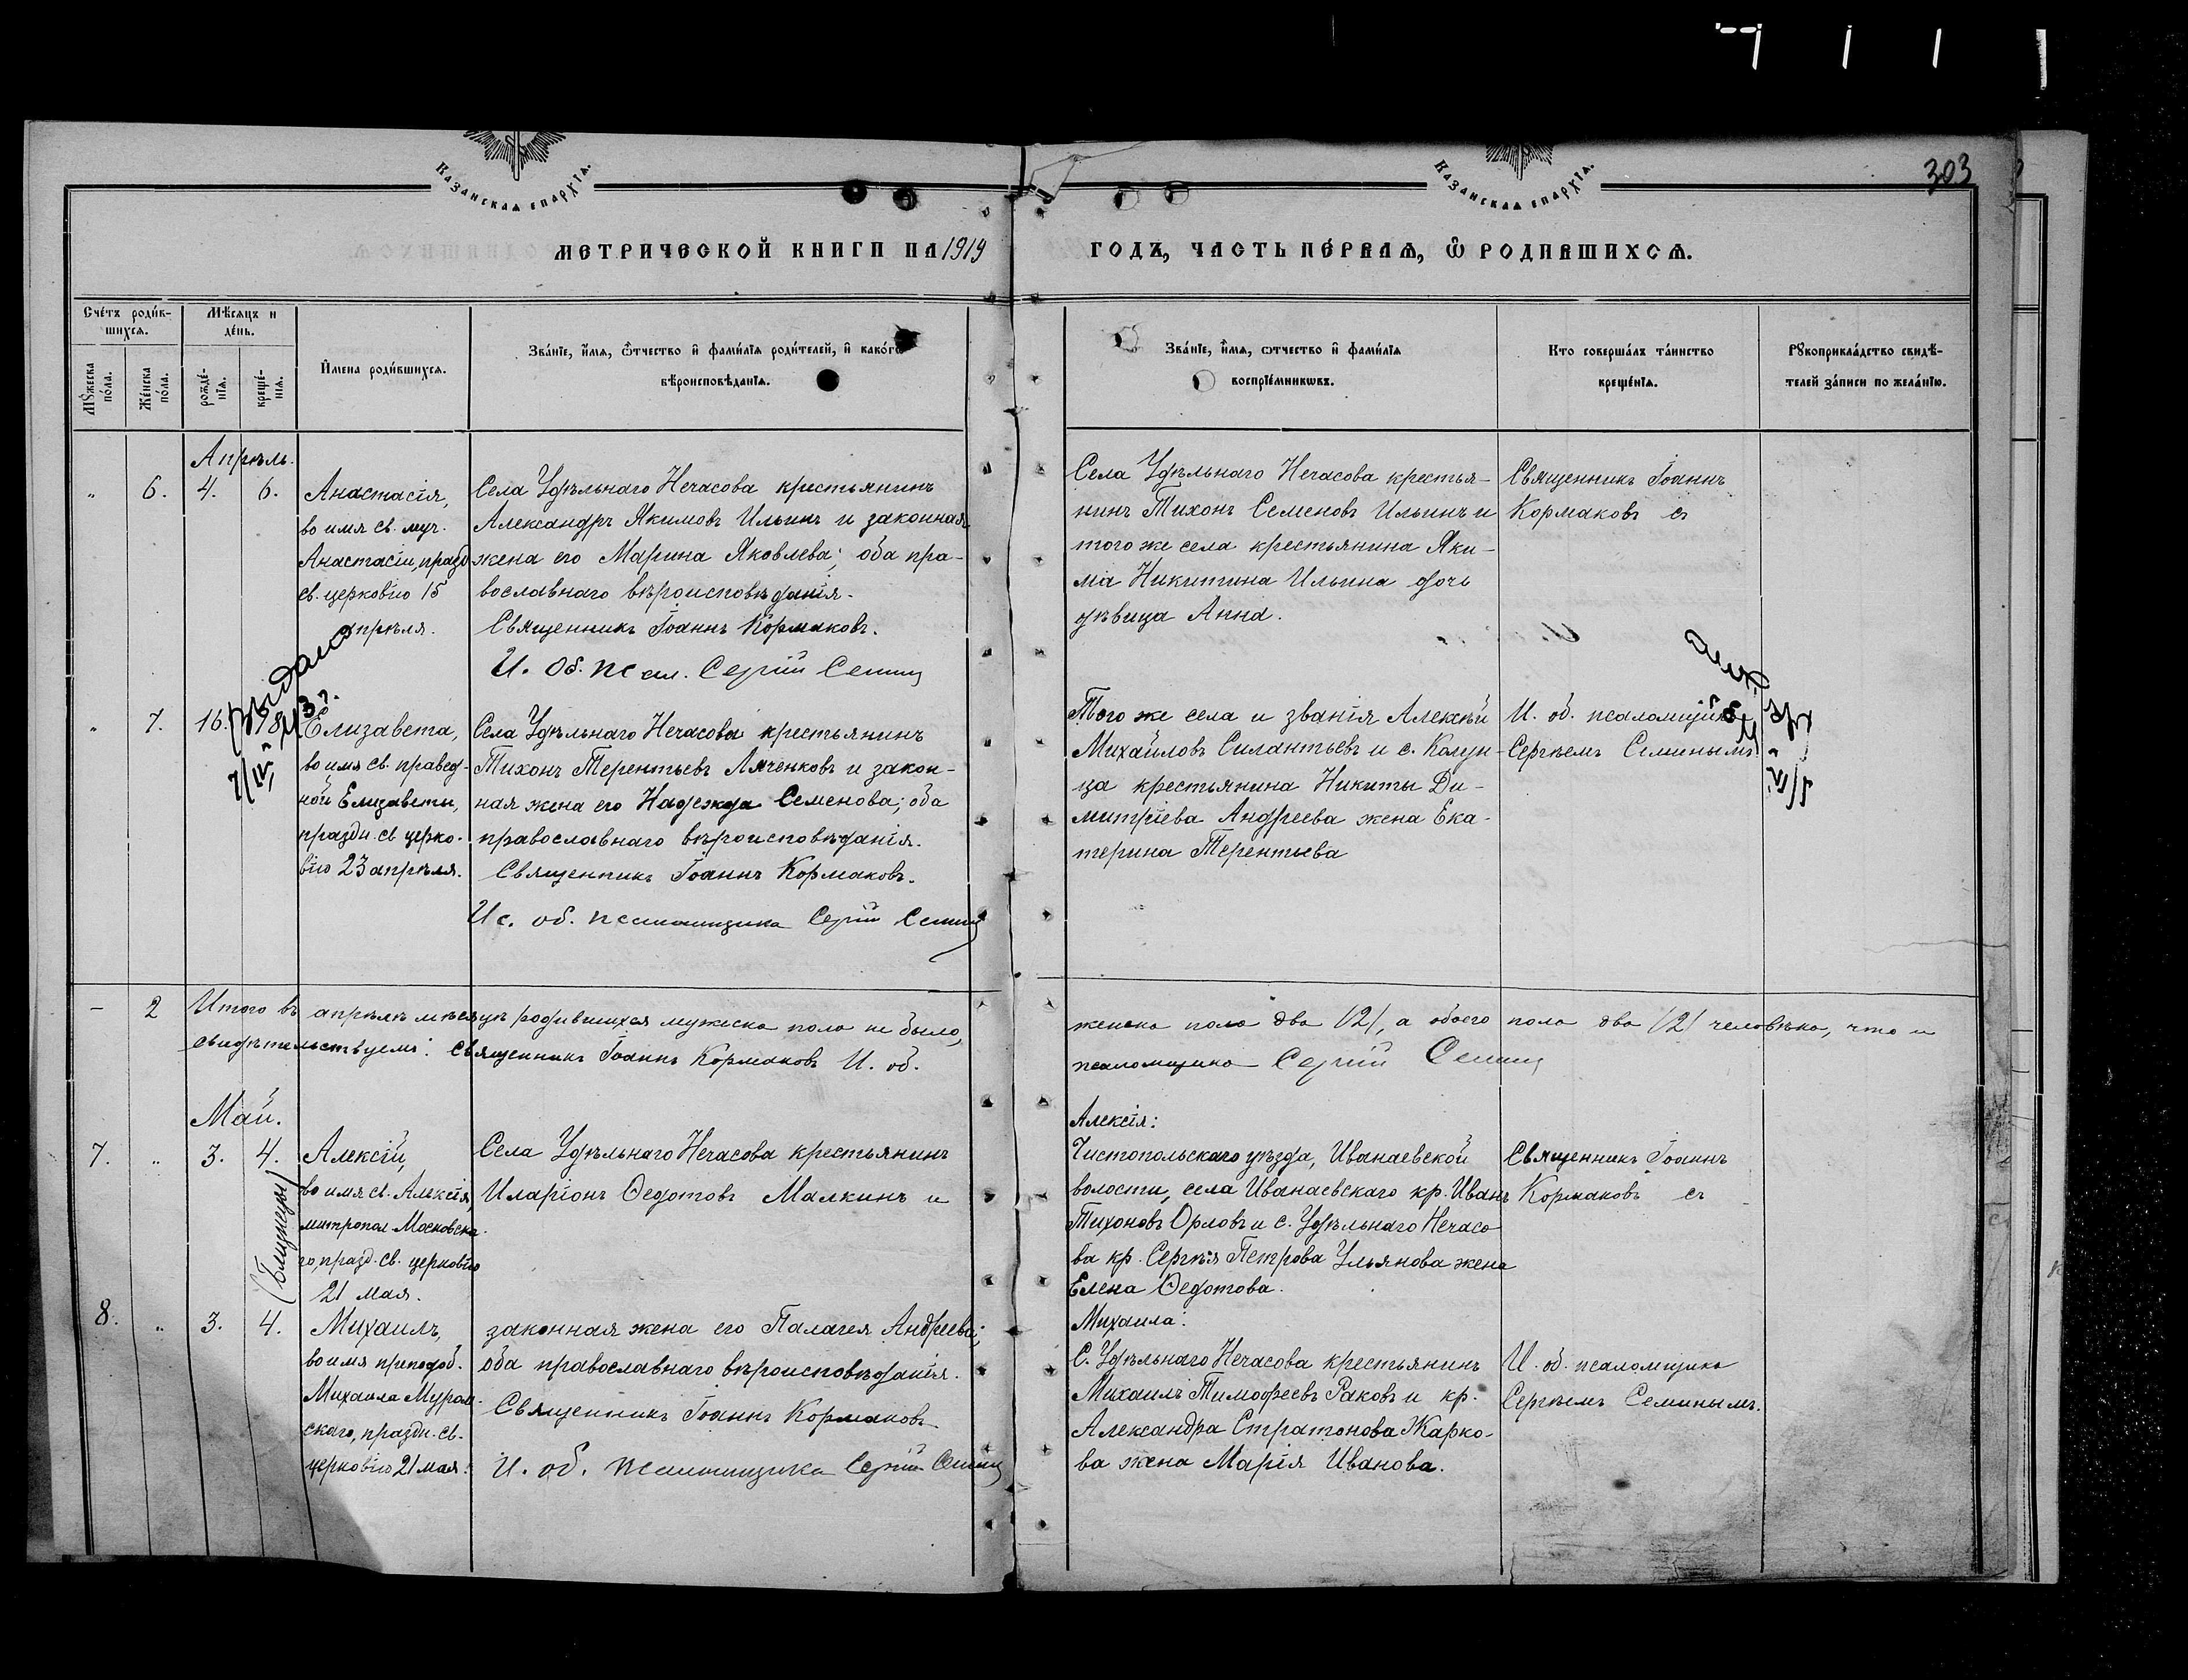 Казанская епархїа.
Казанская епархїа.
303
МЕТРИЧЕСКОЙ КНИГИ НА 1919 ГОДЪ, ЧАСТЬ ПЕ́РВАЯ, Ѽ РОДИВШИХСЯ.
Сче́тъ роди́в-
шихся.
Мѣ́сяцъ и
де́нь.
Мꙋ́жеска
по́ла.
Же́нска
по́ла.
рожде́-
нїя.
креще́-
нїя.
И҆мена роди́вшихся.
Зва́нїе, и҆́мя, ѻ҆́тчество и҆ фами́лїя роди́телей, и҆ како́гѡ
вѣроисповѣ́данїя.
Зва́нїе, и҆́мя, ѻтчество и҆ фами́лїя
воспрїе́мникѡвъ.
Кто соверша́лъ та́инство
креще́нїя.
Рꙋкоприкла́дство свидѣ́-
телей за́писи по жела́нїю.
Апрѣль.
" 6. 4. 6.
Анастасія,
во имя св. муч.
Анастасіи, празд.
св. церковію 15
апрѣля.
Села Удѣльнаго Нечасова крестьянинъ
Александръ Якимовъ Ильинъ и законная
жена его Марина Яковлева; оба пра-
вославнаго вѣроисповѣданія.
Священникъ Іоаннъ Кормаковъ.
И. об. псал. Сергій Семинъ
Села Удѣльнаго Нечасова крестья-
нинъ Тихонъ Семеновъ Ильинъ и
того же села крестьянина Яки-
ма Никитина Ильина дочь
дѣвица Анна.
Священникъ Іоаннъ
Кормаковъ съ
" 7. 16. 18.
Елизавета,
во имя св. правед-
ной Елизаветы,
праздн. св. церко-
вію 23 апрѣля.
Села Удѣльнаго Нечасова крестьянинъ
Тихонъ Терентьевъ Лянченковъ и закон-
ная жена его Надежда Семенова; оба
православнаго вѣроисповѣданія.
Священникъ Іоаннъ Кормаковъ.
Ис. об. псаломщика Сергій Семинъ
Того же села и званія Алексѣй
Михайловъ Силантьевъ и с. Колун-
ца крестьянина Никиты Ди-
митріева Андреева жена Ека-
терина Терентьева
И. об. псаломщика
Сергѣемъ Семинымъ.
– 2 Итого въ апрѣлѣ мѣсяцѣ родившихся мужеска пола не было, женска пола два /2/, а обоего пола два /2/ человѣка, что и
свидѣтельствуемъ: Священникъ Іоаннъ Кормаковъ И. об. псаломщика Сергій Семинъ
Май.
7. " 3. 4.
(Близнецы)
Алексій,
во имя св. Алексія,
митропол. Московска-
го, празд. св. церковію
21 мая.
Села Удѣльнаго Нечасова крестьянинъ
Иларіонъ Ѳедотовъ Малкинъ и
Алексія:
Чистопольскаго уѣзда, Иванаевской
волости, села Иванаевскаго кр. Иванъ
Тихоновъ Орловъ и с. Удѣльнаго Нечасо-
ва кр. Сергѣя Петрова Ульянова жена
Елена Ѳедотова.
Священникъ Іоаннъ
Кормаковъ съ
8. " 3. 4.
Михаилъ,
во имя преподоб.
Михаила Муром-
скаго, праздн. св.
церковію 21 мая.
законная жена его Палагея Андреева;
оба православнаго вѣроисповѣданія.
Священникъ Іоаннъ Кормаковъ.
И. об. псаломщика Сергій Семинъ
Михаила:
С. Удѣльнаго Нечасова крестьянинъ
Михаилъ Тимофеевъ Раковъ и кр.
Александра Стратонова Жарко-
ва жена Марія Иванова.
И. об. псаломщика
Сергѣемъ Семинымъ.